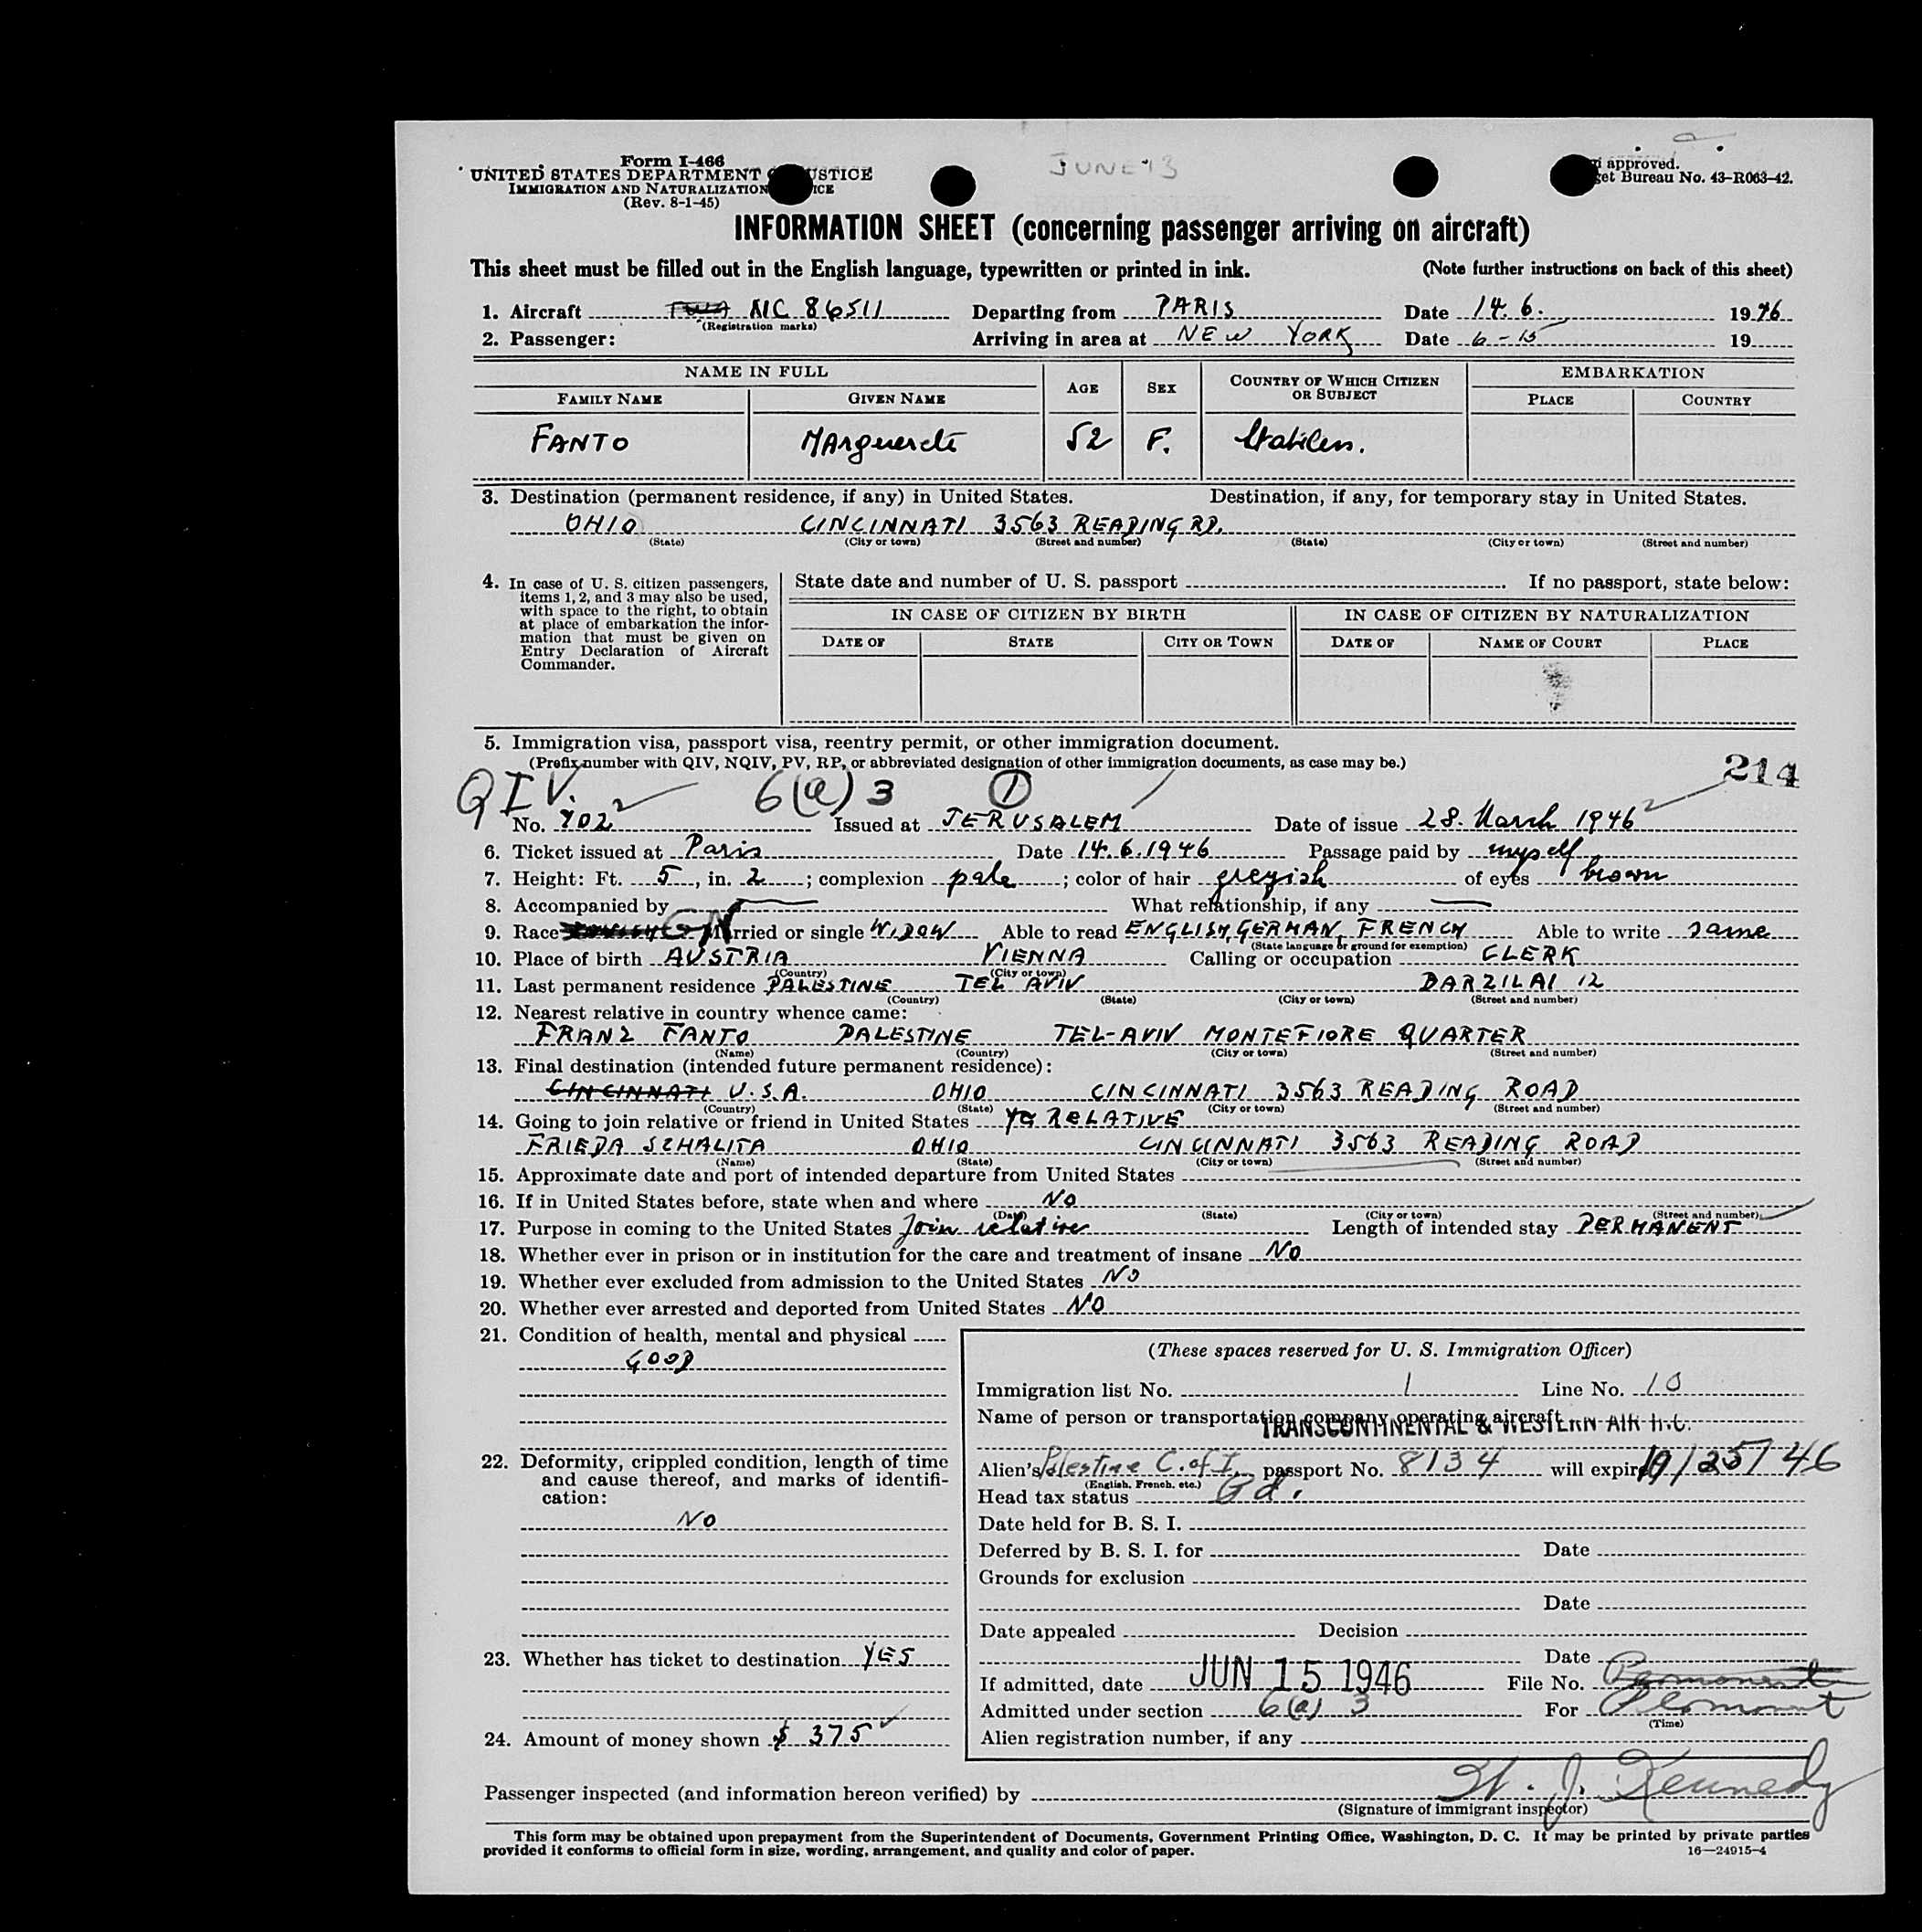 JUNE 13
Form I-466
UNITED STATES DEPARTMENT USTICE
IMMIGRATION AND NATURALIZATION ICE
(Rev. 8-1-45)
approved.
get Bureau No. 43-R063-42.
INFORMATION SHEET (concerning passenger arriving on aircraft)
This sheet must be filled out in the English language, typewritten or printed in ink. (Note further instructions on back of this sheet)
1. Aircraft TWA NC 86511 Departing from PARIS Date 14.6. 1946
(Registration marks)
2. Passenger: Arriving in area at NEW YORK Date 6-15 19
NAME IN FULL AGE SEX COUNTRY OF WHICH CITIZEN OR SUBJECT EMBARKATION
FAMILY NAME GIVEN NAME PLACE COUNTRY
FANTO Marguerete 52 F.
3. Destination (permanent residence, if any) in United States. Destination, if any, for temporary stay in United States.
OHIO CINCINNATI 3563 READING RD.
(State) (City or town) (Street and number) (State) (City or town) (Street and number)
4. In case of U. S. citizen passengers, items 1, 2, and 3 may also be used, with space to the right, to obtain at place of embarkation the information that must be given on Entry Declaration of Aircraft Commander.
State date and number of U. S. passport If no passport, state below:
IN CASE OF CITIZEN BY BIRTH IN CASE OF CITIZEN BY NATURALIZATION
DATE OF STATE CITY OR TOWN DATE OF NAME OF COURT PLACE
5. Immigration visa, passport visa, reentry permit, or other immigration document.
(Prefix number with QIV, NQIV, PV, RP, or abbreviated designation of other immigration documents, as case may be.)
214
QIV. 6(a) 3 1
No. 702 Issued at JERUSALEM Date of issue 28. March 1946
6. Ticket issued at Paris Date 14.6.1946 Passage paid by myself
7. Height: Ft. 5, in. 2; complexion pale; color of hair greyish of eyes brown
8. Accompanied by What relationship, if any
9. Race Married or single WIDOW Able to read ENGLISH, GERMAN, FRENCH Able to write same
(State language or ground for exemption)
10. Place of birth AUSTRIA VIENNA Calling or occupation CLERK
(Country) (City or town)
11. Last permanent residence PALESTINE TEL AVIV BARZILAI 12
(Country) (State) (City or town) (Street and number)
12. Nearest relative in country whence came:
FRANZ FANTO PALESTINE TEL-AVIV MONTEFIORE QUARTER
(Name) (Country) (City or town) (Street and number)
13. Final destination (intended future permanent residence):
CINCINNATI U.S.A. OHIO CINCINNATI 3563 READING ROAD
(Country) (State) (City or town) (Street and number)
14. Going to join relative or friend in United States RELATIVE
FRIEDA SZHALITA OHIO CINCINNATI 3563 READING ROAD
(Name) (State) (City or town) (Street and number)
15. Approximate date and port of intended departure from United States
16. If in United States before, state when and where NO
(Date) (State) (City or town) (Street and number)
17. Purpose in coming to the United States Join relative Length of intended stay PERMANENT
18. Whether ever in prison or in institution for the care and treatment of insane NO
19. Whether ever excluded from admission to the United States NO
20. Whether ever arrested and deported from United States NO
21. Condition of health, mental and physical
GOOD
22. Deformity, crippled condition, length of time and cause thereof, and marks of identification:
NO
23. Whether has ticket to destination YES
24. Amount of money shown $ 375
(These spaces reserved for U. S. Immigration Officer)
Immigration list No. 1 Line No. 10
Name of person or transportation company operating aircraft
TRANSCONTINENTAL & WESTERN AIR INC.
Alien's Palestine C. of I. passport No. 8134 will expire 10/25/46
(English, French, etc.)
Head tax status Pd.
Date held for B. S. I.
Deferred by B. S. I. for Date
Grounds for exclusion
Date
Date appealed Decision
Date
If admitted, date JUN 15 1946 File No. Permanent
Admitted under section 6(a) 3 For Permanent
(Time)
Alien registration number, if any
Passenger inspected (and information hereon verified) by W. J. Kennedy
(Signature of immigrant inspector)
This form may be obtained upon prepayment from the Superintendent of Documents, Government Printing Office, Washington, D. C. It may be printed by private parties
provided it conforms to official form in size, wording, arrangement, and quality and color of paper. 16—24915-4